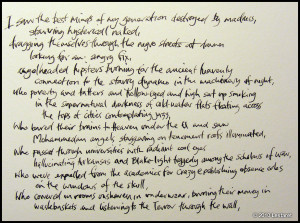 I saw the best minds of my generation destroyed by madness,
starving hysterical naked,
dragging themselves through the negro streets at dawn
looking for an angry fix,
angelheaded hipsters burning for the ancient heavenly
connection to the starry dynamo in the machinery of night,
who poverty and tatters and hollow-eyed and high sat up smoking
in the supernatural darkness of cold-water flats floating across
the tops of cities contemplating jazz,
who bared their brains to Heaven under the El and saw
Mohammedan angels staggering on tenement roofs illuminated,
who passed through universities with radiant cool eyes
hallucinating Arkansas and Blake-light tragedy among the scholars of war,
who were expelled from the academies for crazy & publishing obscene odes
on the windows of the skull,
who cowered in unshaven rooms in underwear, burning their money in
wastebaskets and listening to the Terror through the wall,
© 2010